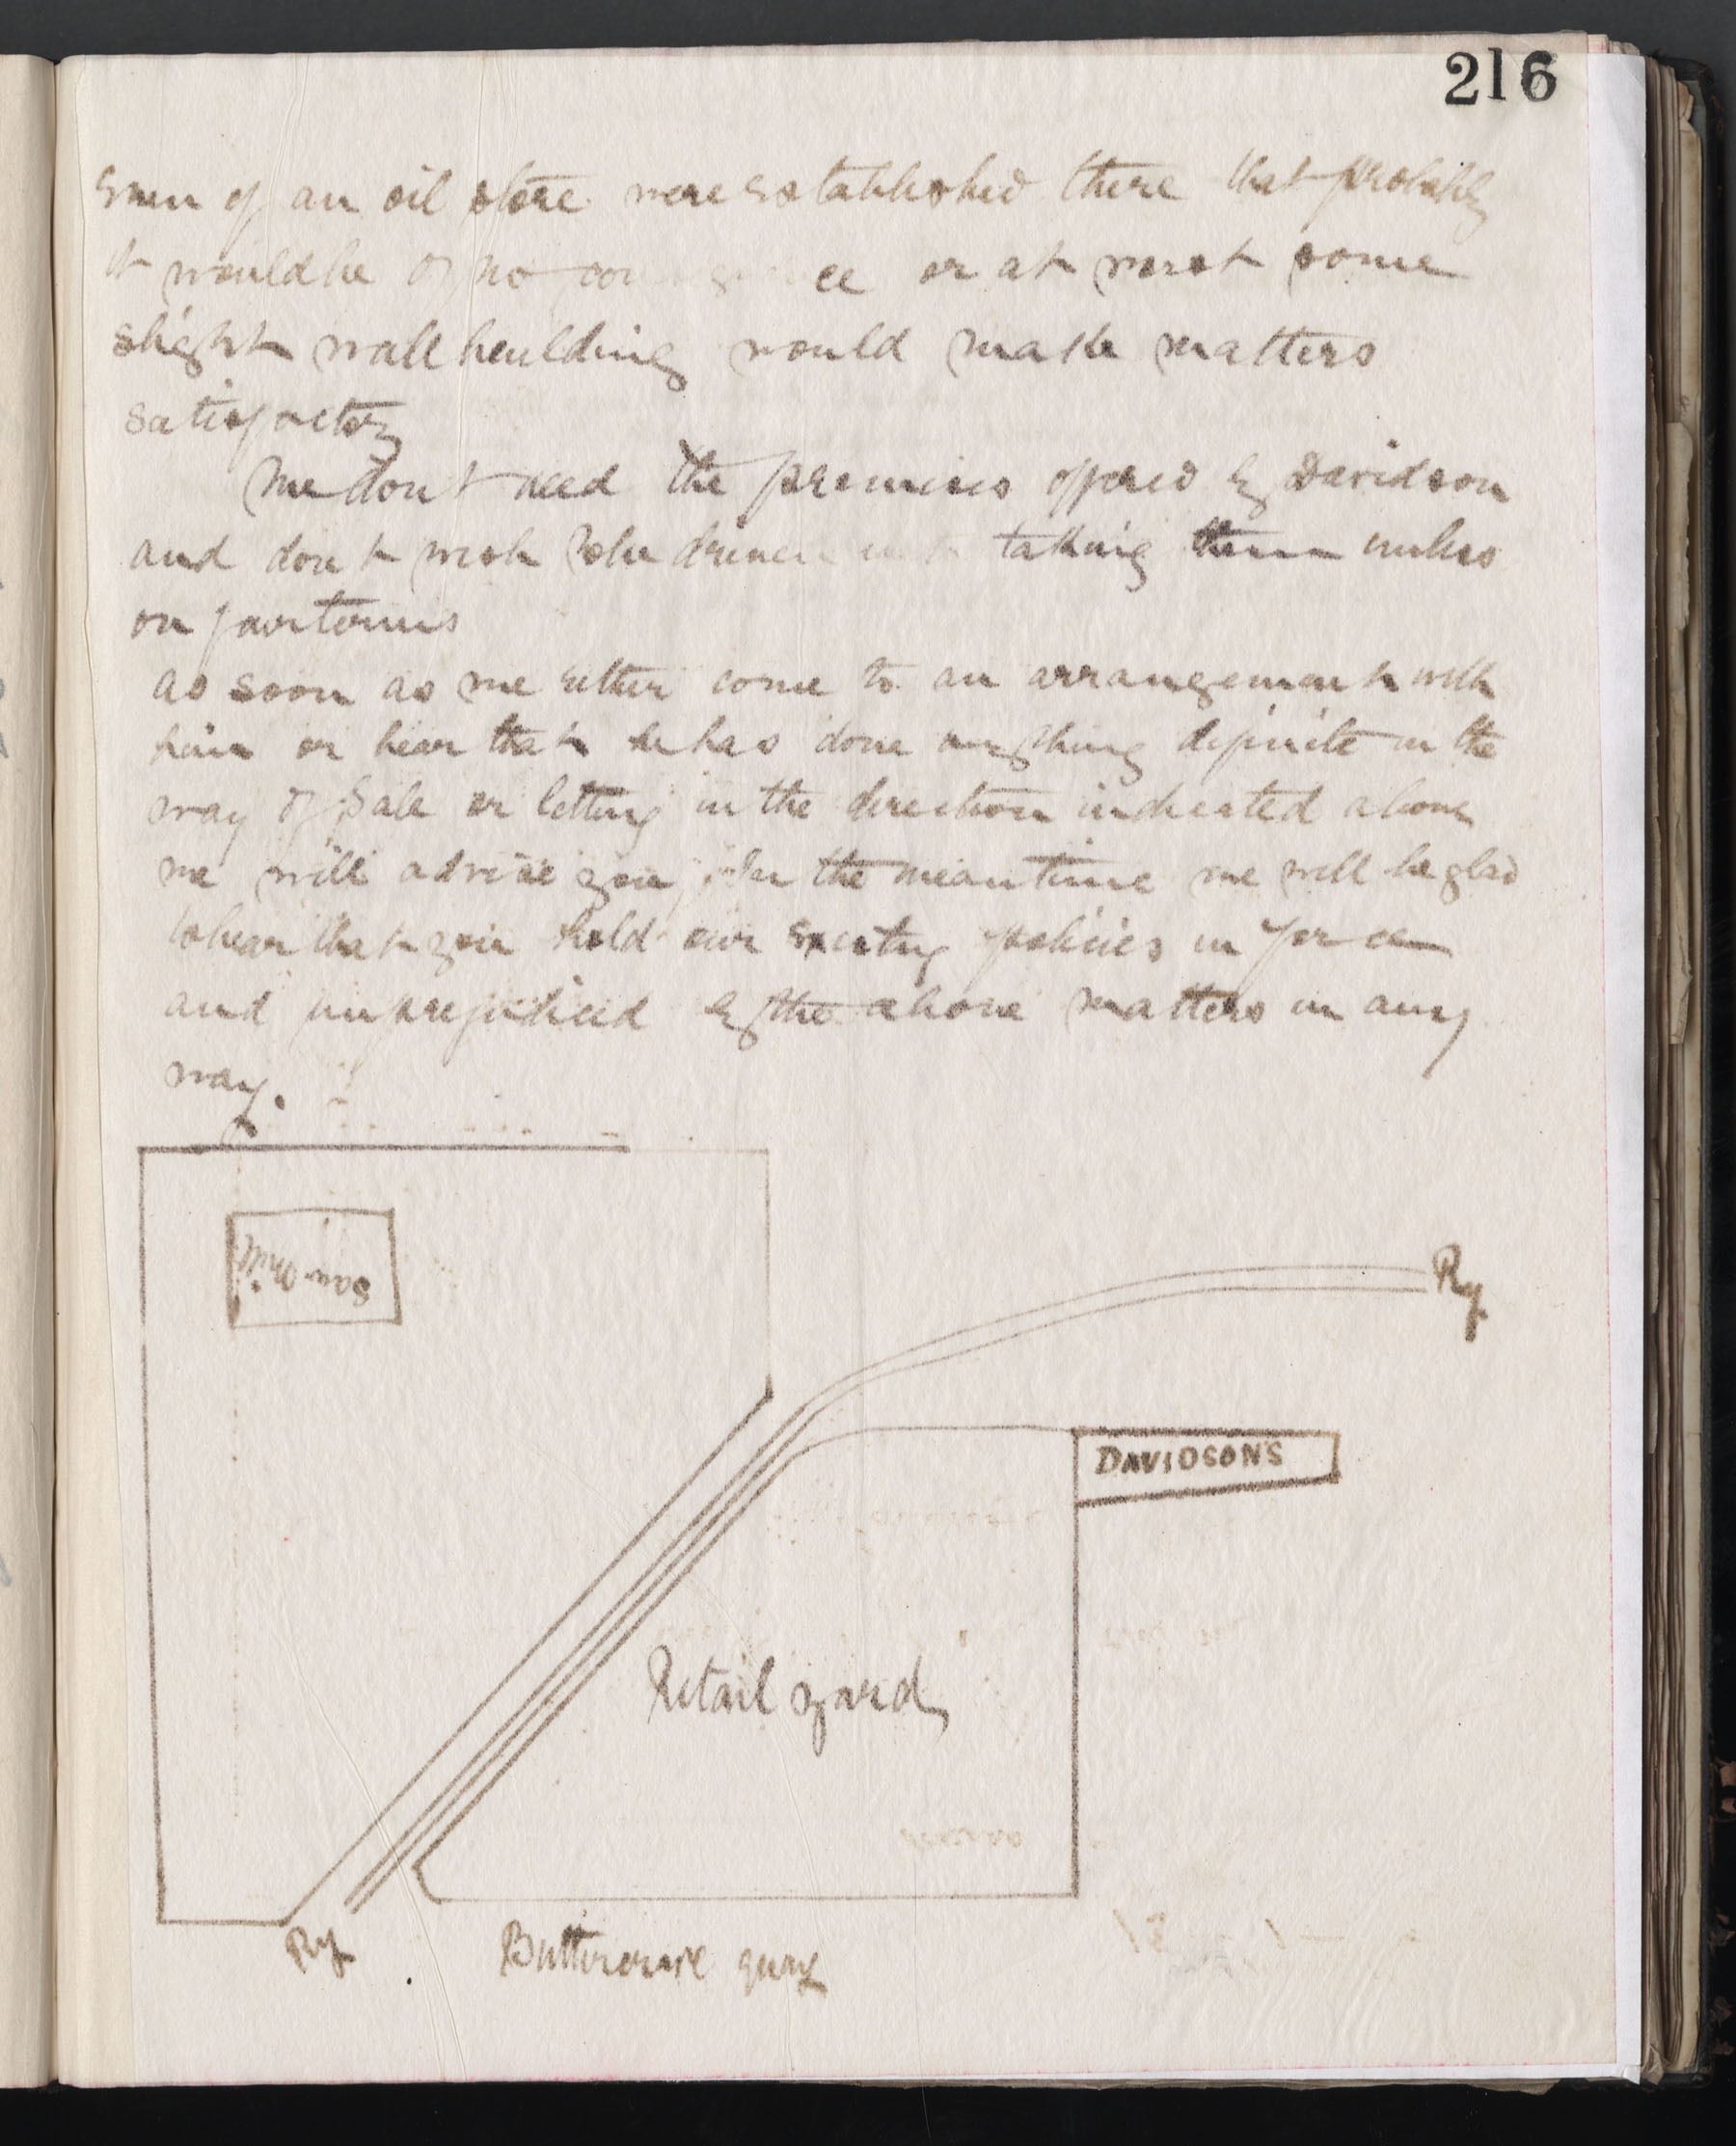 216
even if an oil store were established there that probably
it would be of no ce or at worst some
slight wall building would make matters
satisfactory
We dont need the premises offered by Davidson
and dont wish to be driven into taking them unless
on fair terms
as soon as we either come to an arrangement with
him or hear that he has done anything definite in the
way of sale or letting in the direction indicated above
we will advise you, In the meantime we will be glad
to hear that you hold our existing policies in force
and unprejudiced by the above matters in any
way.
Saw Mill
Ry
DAVIDSONS
Retail yard
Ry
Buttercrane quay